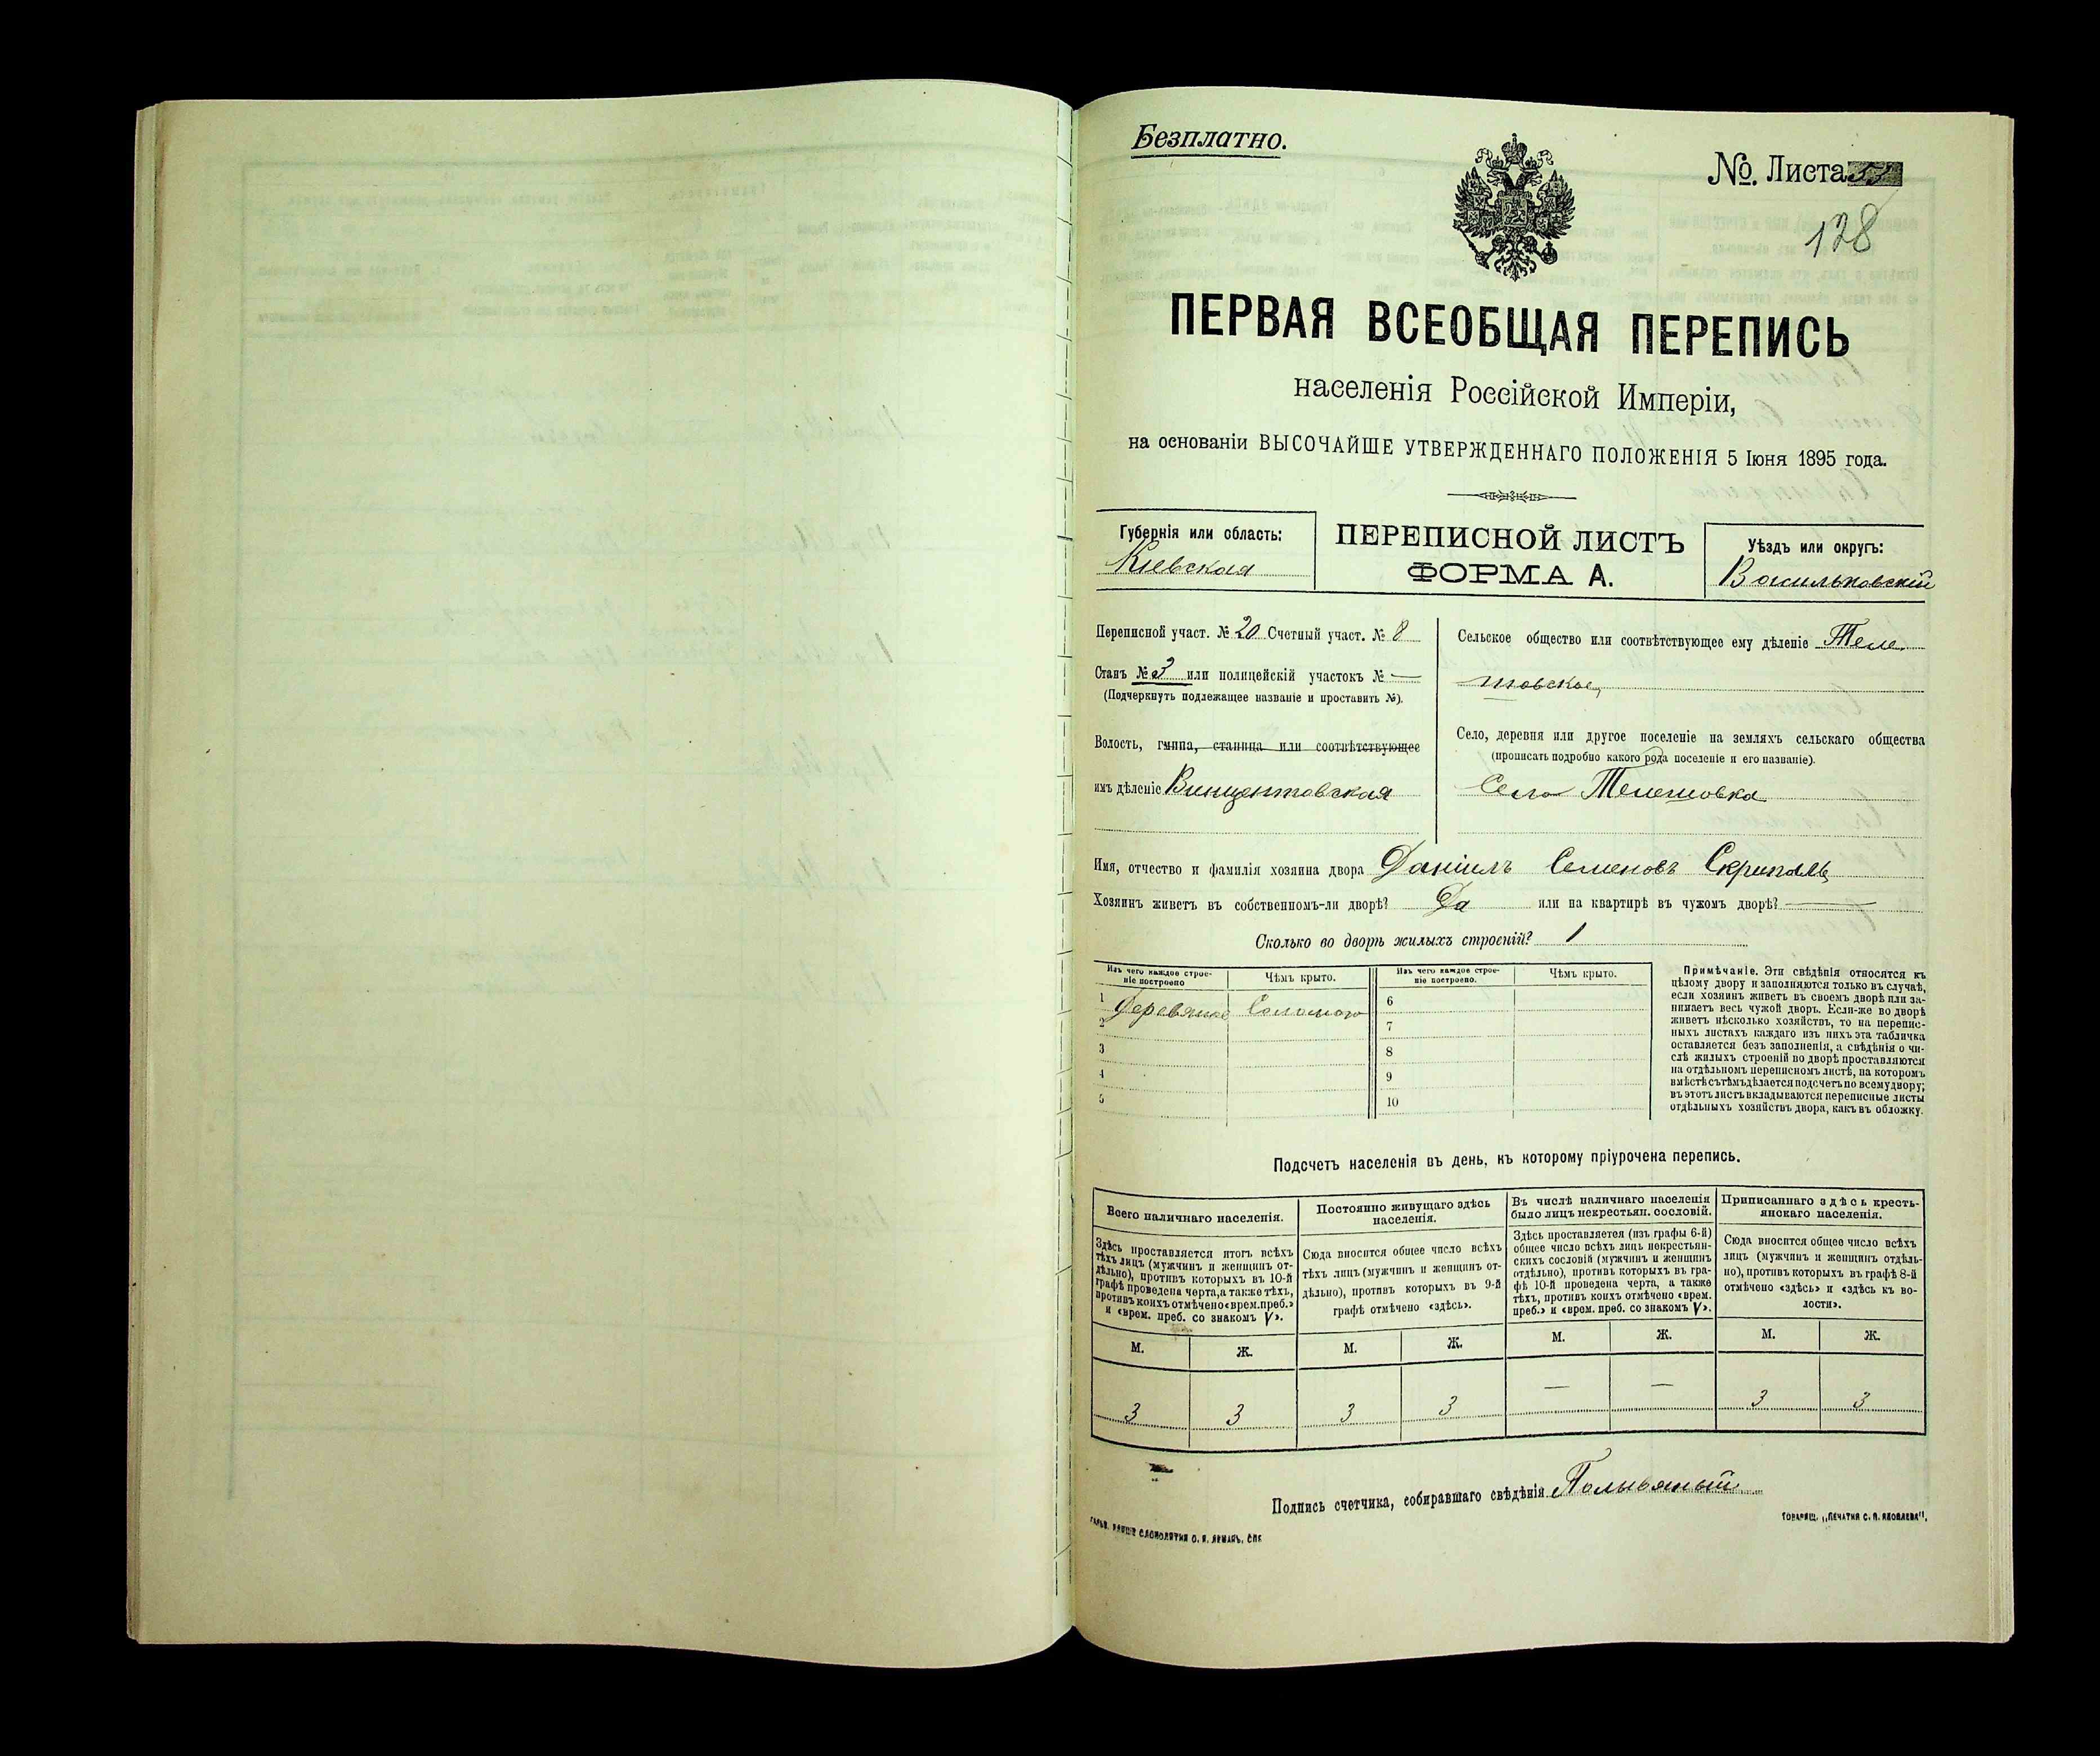 Безплатно.
№. Листа 33
128
ПЕРВАЯ ВСЕОБЩАЯ ПЕРЕПИСЬ
населенія Россійской Имперіи,
на основаніи ВЫСОЧАЙШЕ УТВЕРЖДЕННАГО ПОЛОЖЕНІЯ 5 Іюня 1895 года.
Губернія или область:
Кіевская
ПЕРЕПИСНОЙ ЛИСТЪ
ФОРМА А.
Уѣздъ или округъ:
Васильковскій
Переписной участ. № 20 Счетный участ. № 8
Станъ № 3 или полицейскій участокъ № —
(Подчеркнуть подлежащее названіе и проставить №).
Волость, гмина, станица или соотвѣтствующее
имъ дѣленіе Винцентовская
Сельское общество или соотвѣтствующее ему дѣленіе Теле-
шовское
Село, деревня или другое поселеніе на земляхъ сельскаго общества
(прописать подробно какого рода поселеніе и его названіе).
Село Телешовка
Имя, отчество и фамилія хозяина двора Даніилъ Семеновъ Скрипаль
Хозяинъ живетъ въ собственномъ-ли дворѣ? Да или на квартирѣ въ чужомъ дворѣ? —
Сколько во дворѣ жилыхъ строеній? 1
Изъ чего каждое строе-
ніе построено
Чѣмъ крыто.
Изъ чего каждое строе-
ніе построено.
Чѣмъ крыто.
1 Деревяное Соломою
2
3
4
5
6
7
8
9
10
Примѣчаніе. Эти свѣдѣнія относятся къ
цѣлому двору и заполняются только въ случаѣ,
если хозяинъ живетъ въ своемъ дворѣ или за-
нимаетъ весь чужой дворъ. Если-же во дворѣ
живетъ нѣсколько хозяйствъ, то на перепис-
ныхъ листахъ каждаго изъ нихъ эта табличка
оставляется безъ заполненія, а свѣдѣнія о чи-
слѣ жилыхъ строеній во дворѣ проставляются
на отдѣльномъ переписномъ листѣ, на которомъ
вмѣстѣ съ тѣмъ дѣлается подсчетъ по всему двору;
въ этотъ листъ вкладываются переписные листы
отдѣльныхъ хозяйствъ двора, какъ въ обложку.
Подсчетъ населенія въ день, къ которому пріурочена перепись.
Всего наличнаго населенія.
Здѣсь проставляется итогъ всѣхъ
тѣхъ лицъ (мужчинъ и женщинъ от-
дѣльно), противъ которыхъ въ 10-й
графѣ проведена черта, а также тѣхъ,
противъ коихъ отмѣчено «врем. преб.»
и «врем. преб. со знакомъ V».
Постоянно живущаго здѣсь
населенія.
Сюда вносится общее число всѣхъ
тѣхъ лицъ (мужчинъ и женщинъ от-
дѣльно), противъ которыхъ въ 9-й
графѣ отмѣчено «здѣсь».
Въ числѣ наличнаго населенія
было лицъ некрестьян. сословій.
Здѣсь проставляется (изъ графы 6-й)
общее число всѣхъ лицъ некрестьян-
скихъ сословій (мужчинъ и женщинъ
отдѣльно), противъ которыхъ въ гра-
фѣ 10-й проведена черта, а также
тѣхъ, противъ коихъ отмѣчено «врем.
преб.» и «врем. преб. со знакомъ V».
Приписаннаго здѣсь кресть-
янскаго населенія.
Сюда вносится общее число всѣхъ
лицъ (мужчинъ и женщинъ отдѣль-
но), противъ которыхъ въ графѣ 8-й
отмѣчено «здѣсь» и «здѣсь къ во-
лости».
М. Ж. М. Ж. М. Ж. М. Ж.
3 3 3 3 — — 3 3
Подпись счетчика, собиравшаго свѣдѣнія
ТОВАРИЩ. „ПЕЧАТНЯ С. П. ЯКОВЛЕВА".